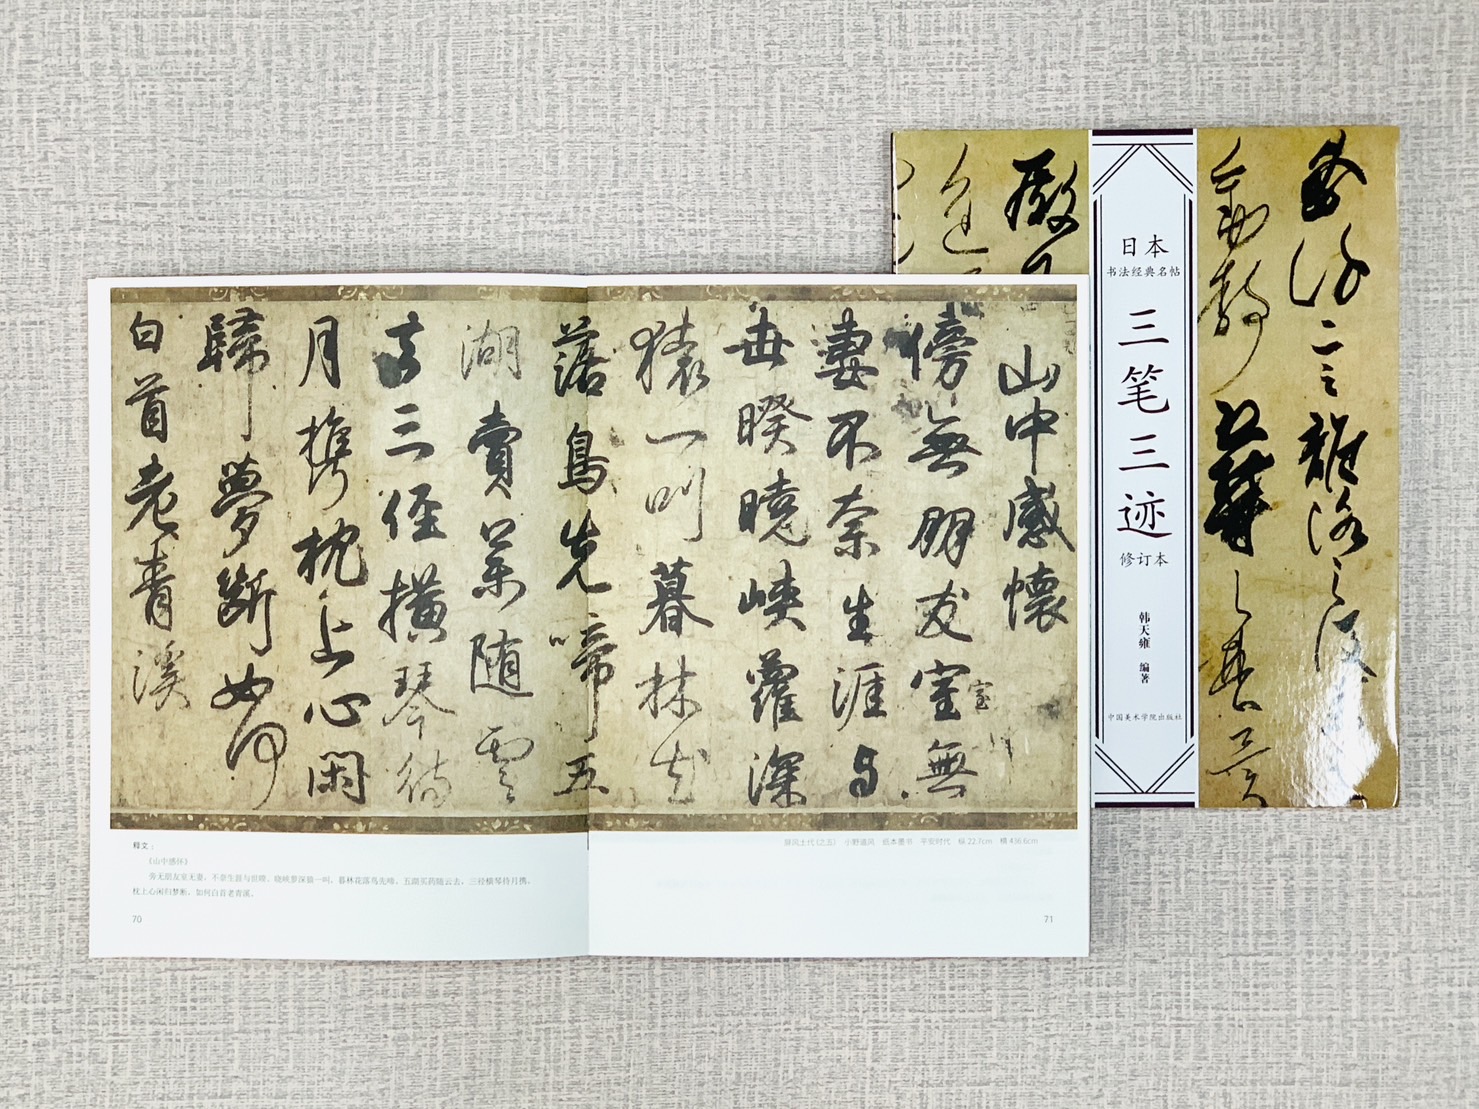 山中感懷
傍無朋友室無
室
妻不奈生涯与
世暌曉峽蘿深
猿一叫暮林花
落鳥先啼五
湖賣藥随雲
去三徑橫琴待
月携枕上心閑
歸夢斷如何
白首老青溪
屏风土代(之五) 小野道风 纸本墨书 平安时代 纵 22.7cm 横 436.6cm
释文：
《山中感怀》
旁无朋友室无妻，不奈生涯与世暌，晓峡萝深猿一叫，暮林花落鸟先啼，五湖买药随云去，三径横琴待月携，
枕上心闲归梦断，如何白首老青溪。
70
71
日本
书法经典名帖
三笔三迹
修订本
韩天雍 编著
中国美术学院出版社